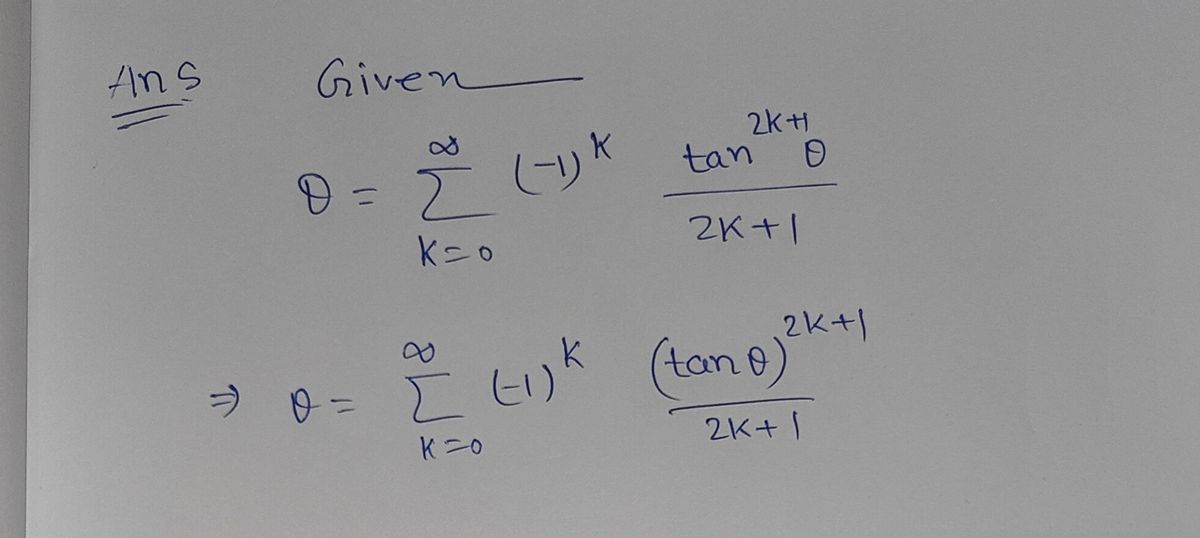 Ans Given
θ = ∞ Σ k=0 (-1)^k tan^{2k+1} θ / 2k+1
⇒ θ = ∞ Σ k=0 (-1)^k (tan θ)^{2k+1} / 2k+1